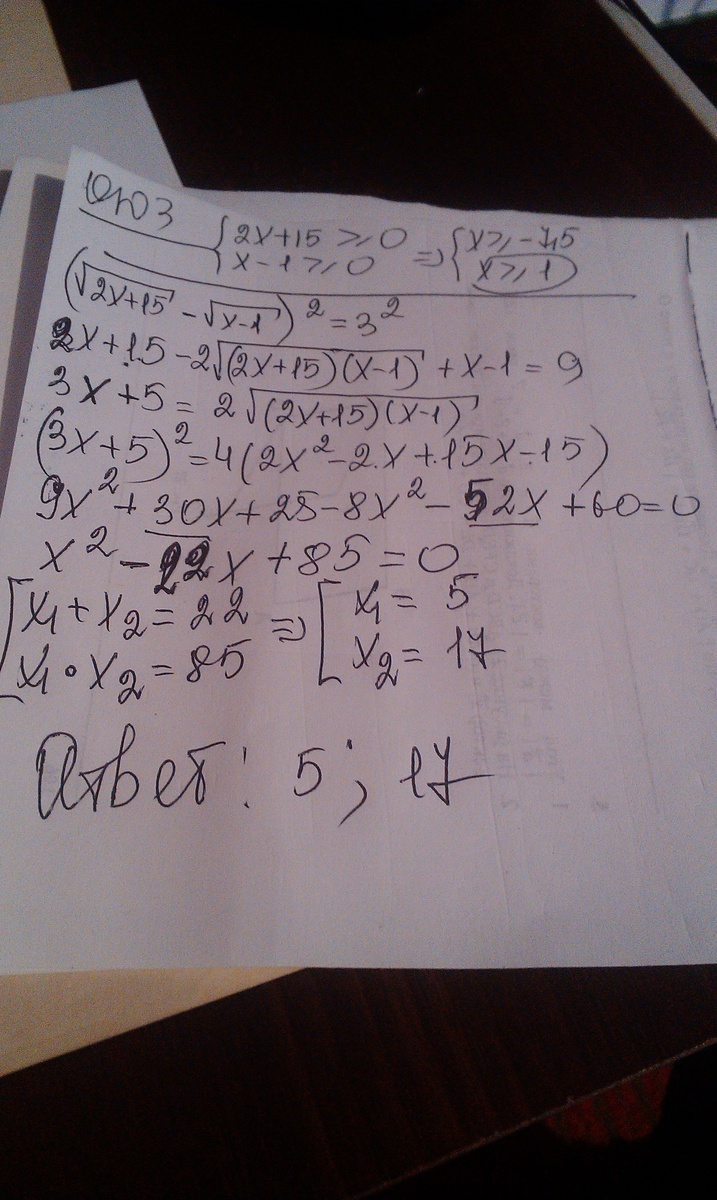 ОДЗ
{2x+15 ⩾ 0 ⇒ {x ⩾ -7,5
{x-1 ⩾ 0 {x ⩾ 1
(√(2x+15) - √(x-1))² = 3²
2x+15-2√((2x+15)(x-1)) + x-1 = 9
3x+5 = 2√((2x+15)(x-1))
(3x+5)² = 4(2x²-2x+15x-15)
9x²+30x+25-8x²-52x+60=0
x²-22x+85=0
[x₁+x₂=22 ⇒ [x₁= 5
[x₁·x₂=85 [x₂= 17
Ответ: 5; 17